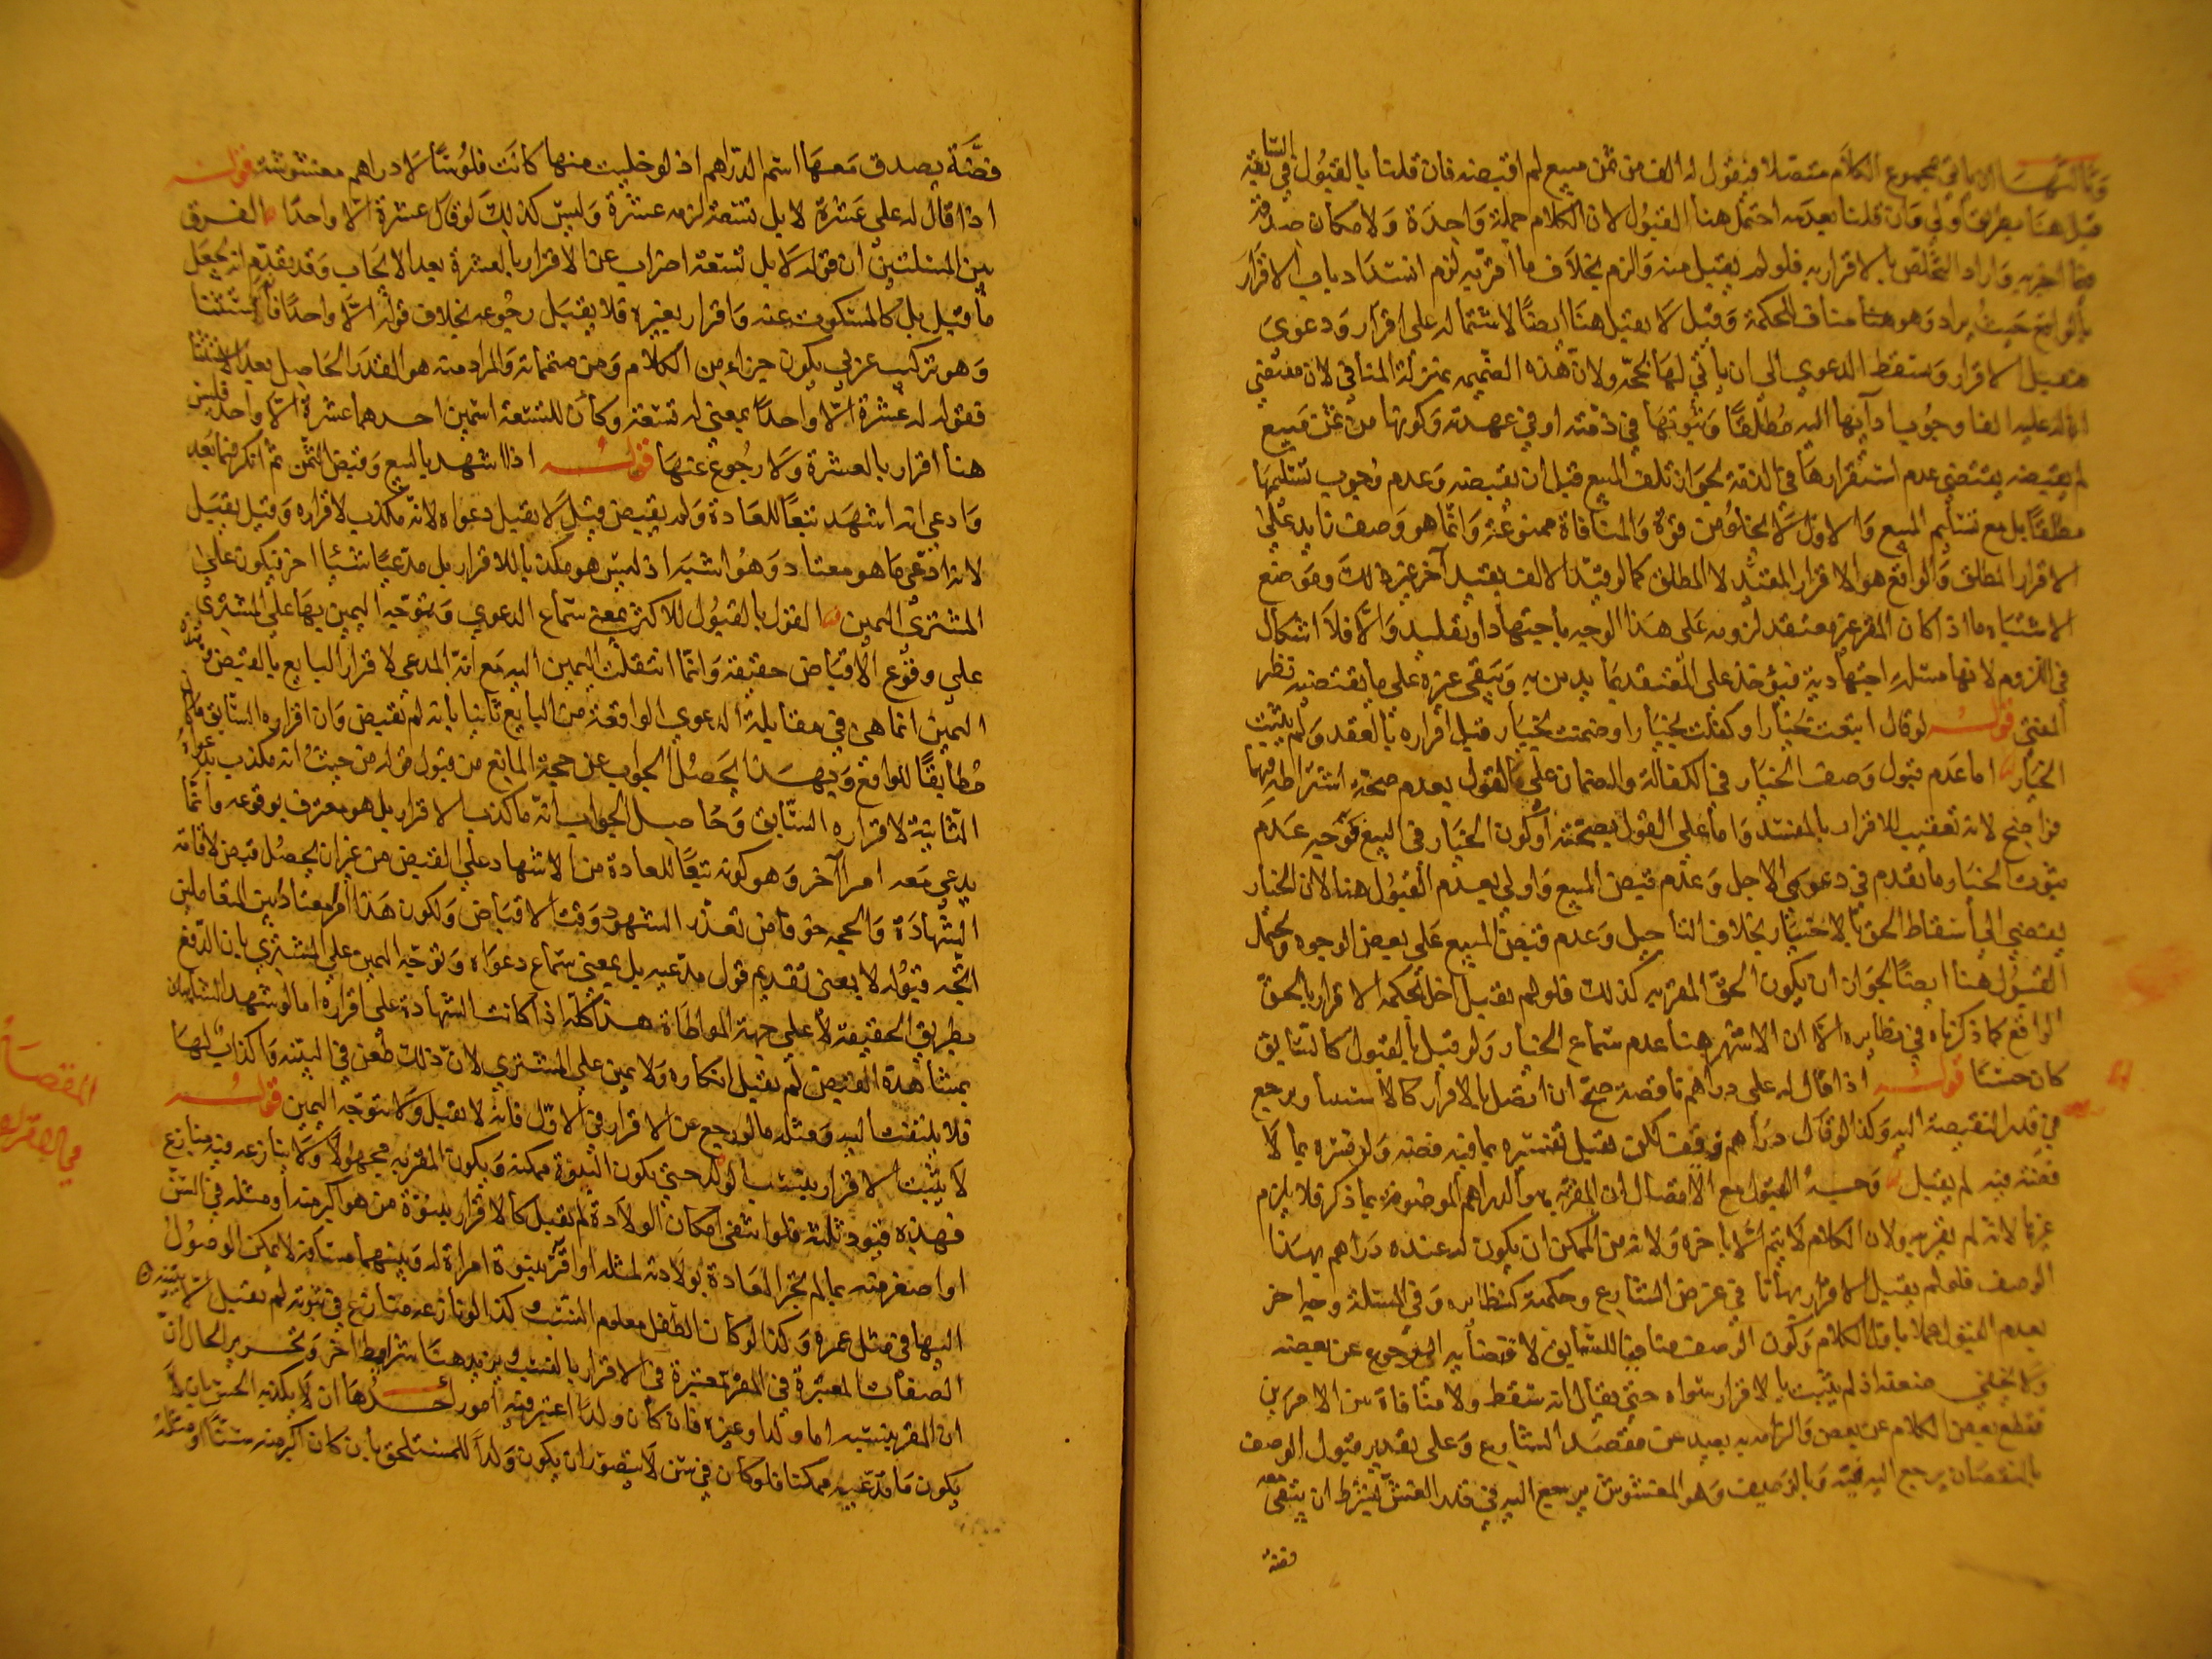 وثالثها الاتيان في مجموع الكلام متصلا فيقول له الف من ثمن مبيع لم اقبضه فان قلنا بالقبول في السابقة
قبل هنا بطريق اولى وان قلنا بعدمه احتمل هنا القبول لان الكلام جملة واحدة ولامكان صدقه
فيما اخبر به واراد التخلص بالاقرار به فلو لم يقبل منه والزم بخلاف ما اقر به لزم انسداد باب الاقرار
بالواقع حيث يراد وهو هنا مناف للحكمة وقيل لا يقبل هنا ايضا لاشتماله على اقرار ودعوى
فيقبل الاقرار وتسقط الدعوى الى ان ياتي لها بحجة ولان هذه الضميمة بمنزلة المنافي لان مقتضى
ان له عليه الفا وجوب ادائها اليه مطلقا وثبوتها في ذمته او في عهدته وكونها من ثمن مبيع
لم يقبضه يقتضي عدم استقرارها في الذمة لجواز تلف المبيع قبل ان يقبضه وعدم وجوب تسليمها
مطلقا بل مع تسليم المبيع والاول لا يخلو من قوة والمنافاة ممنوعة وانما هو وصف زايد على
الاقرار المطلق والواقع هو الاقرار المقيد لا المطلق كما لو قيد الالف بقيد آخر غير ذلك وموضع
الاشتباه ما اذا كان المقر غير معتقد لزومه على هذا الوجه باجتهاد او تقليد والا فلا اشكال
في اللزوم لانها مسئلة اجتهادية فيؤخذ على المعتقد بما يدين به ويبقى غيره على ما يقتضيه نظر
المفتي قوله لو قال ابتعت بخيار او كفلت بخيار او ضمنت بخيار قبل اقراره بالعقد ولم يثبت
الخيار اما عدم قبول وصف الخيار في الكفالة والضمان على القول بعدم صحة اشتراطه فيهما
فواضح لانه تعقيب للاقرار بالمفسد واما على القول بصحته او كون الخيار في البيع فتوجيه عدم
ثبوت الخيار ما تقدم في دعوى الاجل وعدم قبض المبيع واولى بعدم القبول هنا لان الخيار
يفضي الى اسقاط الحق بالاختيار بخلاف التاجيل وعدم قبض المبيع على بعض الوجوه ويحتمل
القبول هنا ايضا لجواز ان يكون الحق المقر به كذلك فلو لم يقبل اخل بحكمة الاقرار بالحق
الواقع كما ذكرناه في نظايره الا ان الاشهر هنا عدم سماع الخيار ولو قيل بالقبول كالسابق
كان حسنا قوله اذا قال له علي دراهم ناقصة صح ان اتصل بالاقرار كالاستثناء ويرجع
في قدر النقيصة اليه وكذا لو قال دراهم زيف لكن يقبل تفسيره بما فيه فضة ولو فسره بما لا
فضة فيه لم يقبل وجه القبول مع الاتصال ان المقر به هو الدراهم الموصوفة بما ذكر فلا يلزم
غيرها لانه لم يقر به ولان الكلام لا يتم الا باخره ولانه من الممكن ان يكون له عنده دراهم بهذا
الوصف فلو لم يقبل الاقرار بها نافى غرض الشارع وحكمته كنظايره وفي المسئلة وجه اخر
بعدم القبول عملا باول الكلام وكون الوصف منافيا للسابق لاقتضايه الرجوع عن بعضه
ولا يخفى ضعفه اذ لم يثبت بالاقرار سواه حتى يقال انه سقط ولا منافاة بين الامرين
فقطع بعض الكلام عن بعض والزامه به بعيد عن مقصد الشارع وعلى تقدير قبول الوصف
بالنقصان يرجع اليه فيه وبالزيف وهو المغشوش يرجع اليه في قدر الغش بشرط ان يبقى معه
فضة
فضة يصدق معها اسم الدراهم اذ لو خليت منها كانت فلوسا لا دراهم مغشوشة قوله
اذا قال له علي عشرة لا بل تسعة لزمه عشرة وليس كذلك لو قال عشرة الا واحدا الفرق
بين المسئلتين ان قوله لا بل تسعة اضراب عن الاقرار بالعشرة بعد الايجاب وقد تقدم انه يجعل
ما قبل بل كالمسكوت عنه واقرار بغيره فلا يقبل رجوعه بخلاف قوله الا واحدا فانه استثنا
وهو تركيب عربي يكون جزاء من الكلام ومن متمماته والمراد منه هو القدر الحاصل بعد الاستثنا
فقوله له عشرة الا واحدا بمعنى له تسعة وكأن للتسعة اسمين احدهما عشرة الا واحدا فليس
هنا اقرار بالعشرة ولا رجوع عنها قوله اذا اشهد بالبيع وقبض الثمن ثم انكر فيما بعد
وادعى انه اشهد تبعا للعادة ولم يقبض قيل لا يقبل دعواه لانه مكذب لاقراره وقيل يقبل
لانه ادعى ما هو معتاد وهو اشبه اذ ليس هو مكذبا للاقرار بل مدعيا شيئا اخر فيكون على
المشتري اليمين القول بالقبول للاكثر بمعنى سماع الدعوى وتوجه اليمين بها على المشتري
على وقوع الاقباض حقيقة وانما انتقلت اليمين اليه مع انه المدعي لاقرار البايع بالقبض فهذه
اليمين انما هي في مقابلة الدعوى الواقعة من البايع ثانيا بانه لم يقبض وان اقراره السابق ما كان
مطابقا للواقع وبهذا يحصل الجواب عن حجة المانع من قبول قوله من حيث انه مكذب بدعواه
الثانية لاقراره السابق وحاصل الجواب انه ما كذب الاقرار بل هو معترف بوقوعه وانما
يدعي معه امرا آخر وهو كونه تبعا للعادة من الاشهاد على القبض من غير ان يحصل قبض لاقامة
الشهادة والحجة خوفا من تعذر الشهود وقت الاقباض ولكون هذا امرا معتادا بين المتعاملين
اتجه قبوله لا بمعنى تقديم قول مدعيه بل بمعنى سماع دعواه وتوجه اليمين على المشتري بان الدفع
بطريق الحقيقة لا على جهة المواطاة هذا كله اذا كانت الشهادة على اقراره اما لو شهد الشاهدان
بمشاهدة القبض لم يقبل انكاره ولا يمين على المشتري لان ذلك طعن في البينة واكذاب لها
فلا يلتفت اليه ومثله ما لو رجع عن الاقرار في الاول فانه لا يقبل ولا يتوجه اليمين قوله
لا يثبت الاقرار بنسب الولد حتى يكون البنوة ممكنة ويكون المقر به مجهولا ولا ينازعه فيه منازع
فهذه قيود ثلثة فلو انتفى امكان الولادة لم يقبل كالاقرار ببنوة من هو اكبر منه او مثله في السن
او اصغر منه بما لم تجر العادة بولادته لمثله او اقر ببنوة امراة له وبينهما مسافة لا يمكن الوصول
اليها في مثل عمره وكذا لو كان الطفل معلوم النسب وكذا لو نازعه منازع في بنوته لم يقبل الا ببينة
الصفات المعتبرة في المقر معتبرة في الاقرار بالنسب ويزيد هنا شرايط اخر وتحرير الحال ان
ان المقر بنسبه اما ولد او غيره فان كان ولدا اعتبر فيه امور احدها ان لا يكذبه الحس بان لا
يكون ما يدعيه ممكنا فلو كان في سن لا يتصور ان يكون ولدا للمستلحق بان كان اكبر منه سنا او مثله
المقصد
في الاقرار